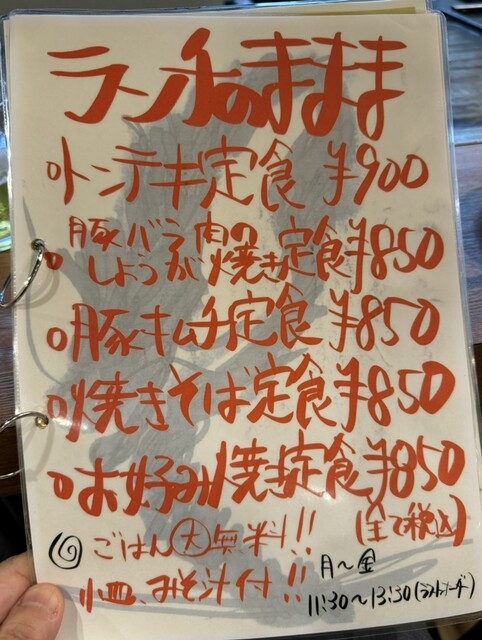 ランチのまままま
○トンテキ定食 ¥900
○豚バラ肉の
しょうが焼き定食 ¥850
○豚キムチ定食 ¥850
○焼きそば定食 ¥850
○お好み焼き定食 ¥850
(全て税込)
◎ごはん大無料!!
小皿、みそ汁付!!
月〜金
11:30〜13:30(ラストオーダー)